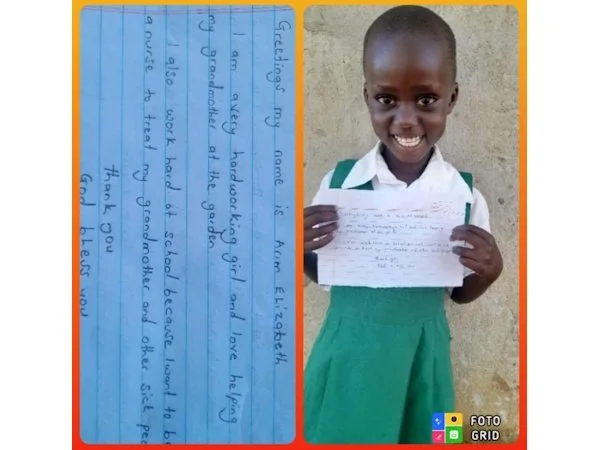 Greetings my name is Arim ELizabeth
I am avery hardworking girl and love helping
my grandmother at the garden
I also work hard at school because I want to be
a nurse to treat my grandmother and other sick peo
thank you
God bless you
FOTO
GRID